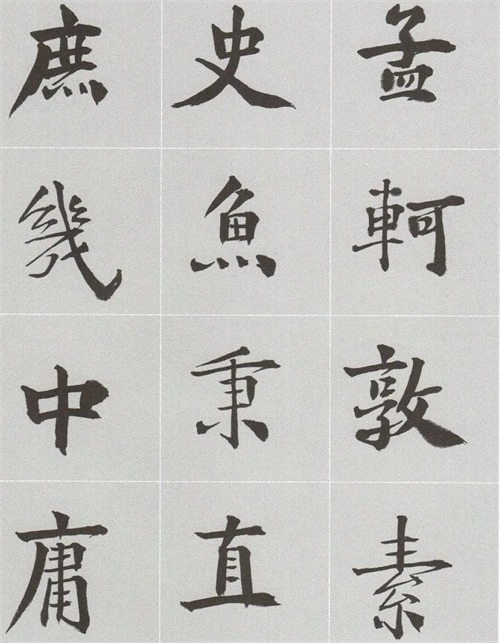 孟軻敦素
史魚秉直
庶幾中庸